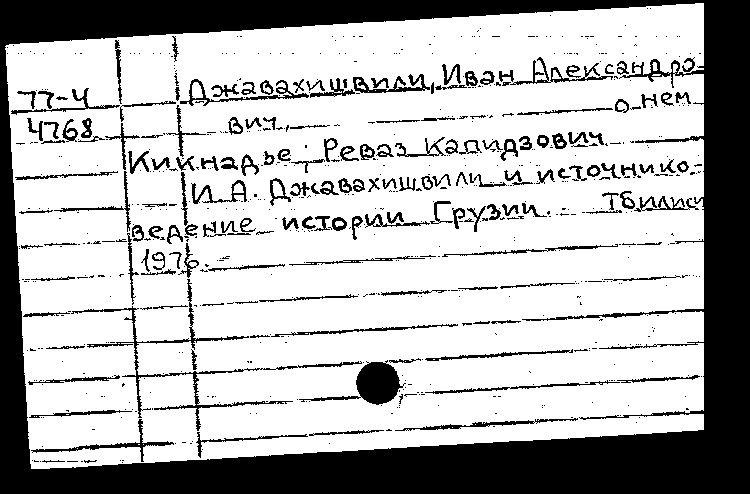 77-4 Джавахишвили, Иван Александро-
4768 вич, о нем
Кикнадзе, Реваз Капидзович
И. А. Джавахишвили и источнико-
ведение истории Грузии. Тбилиси
1976.-